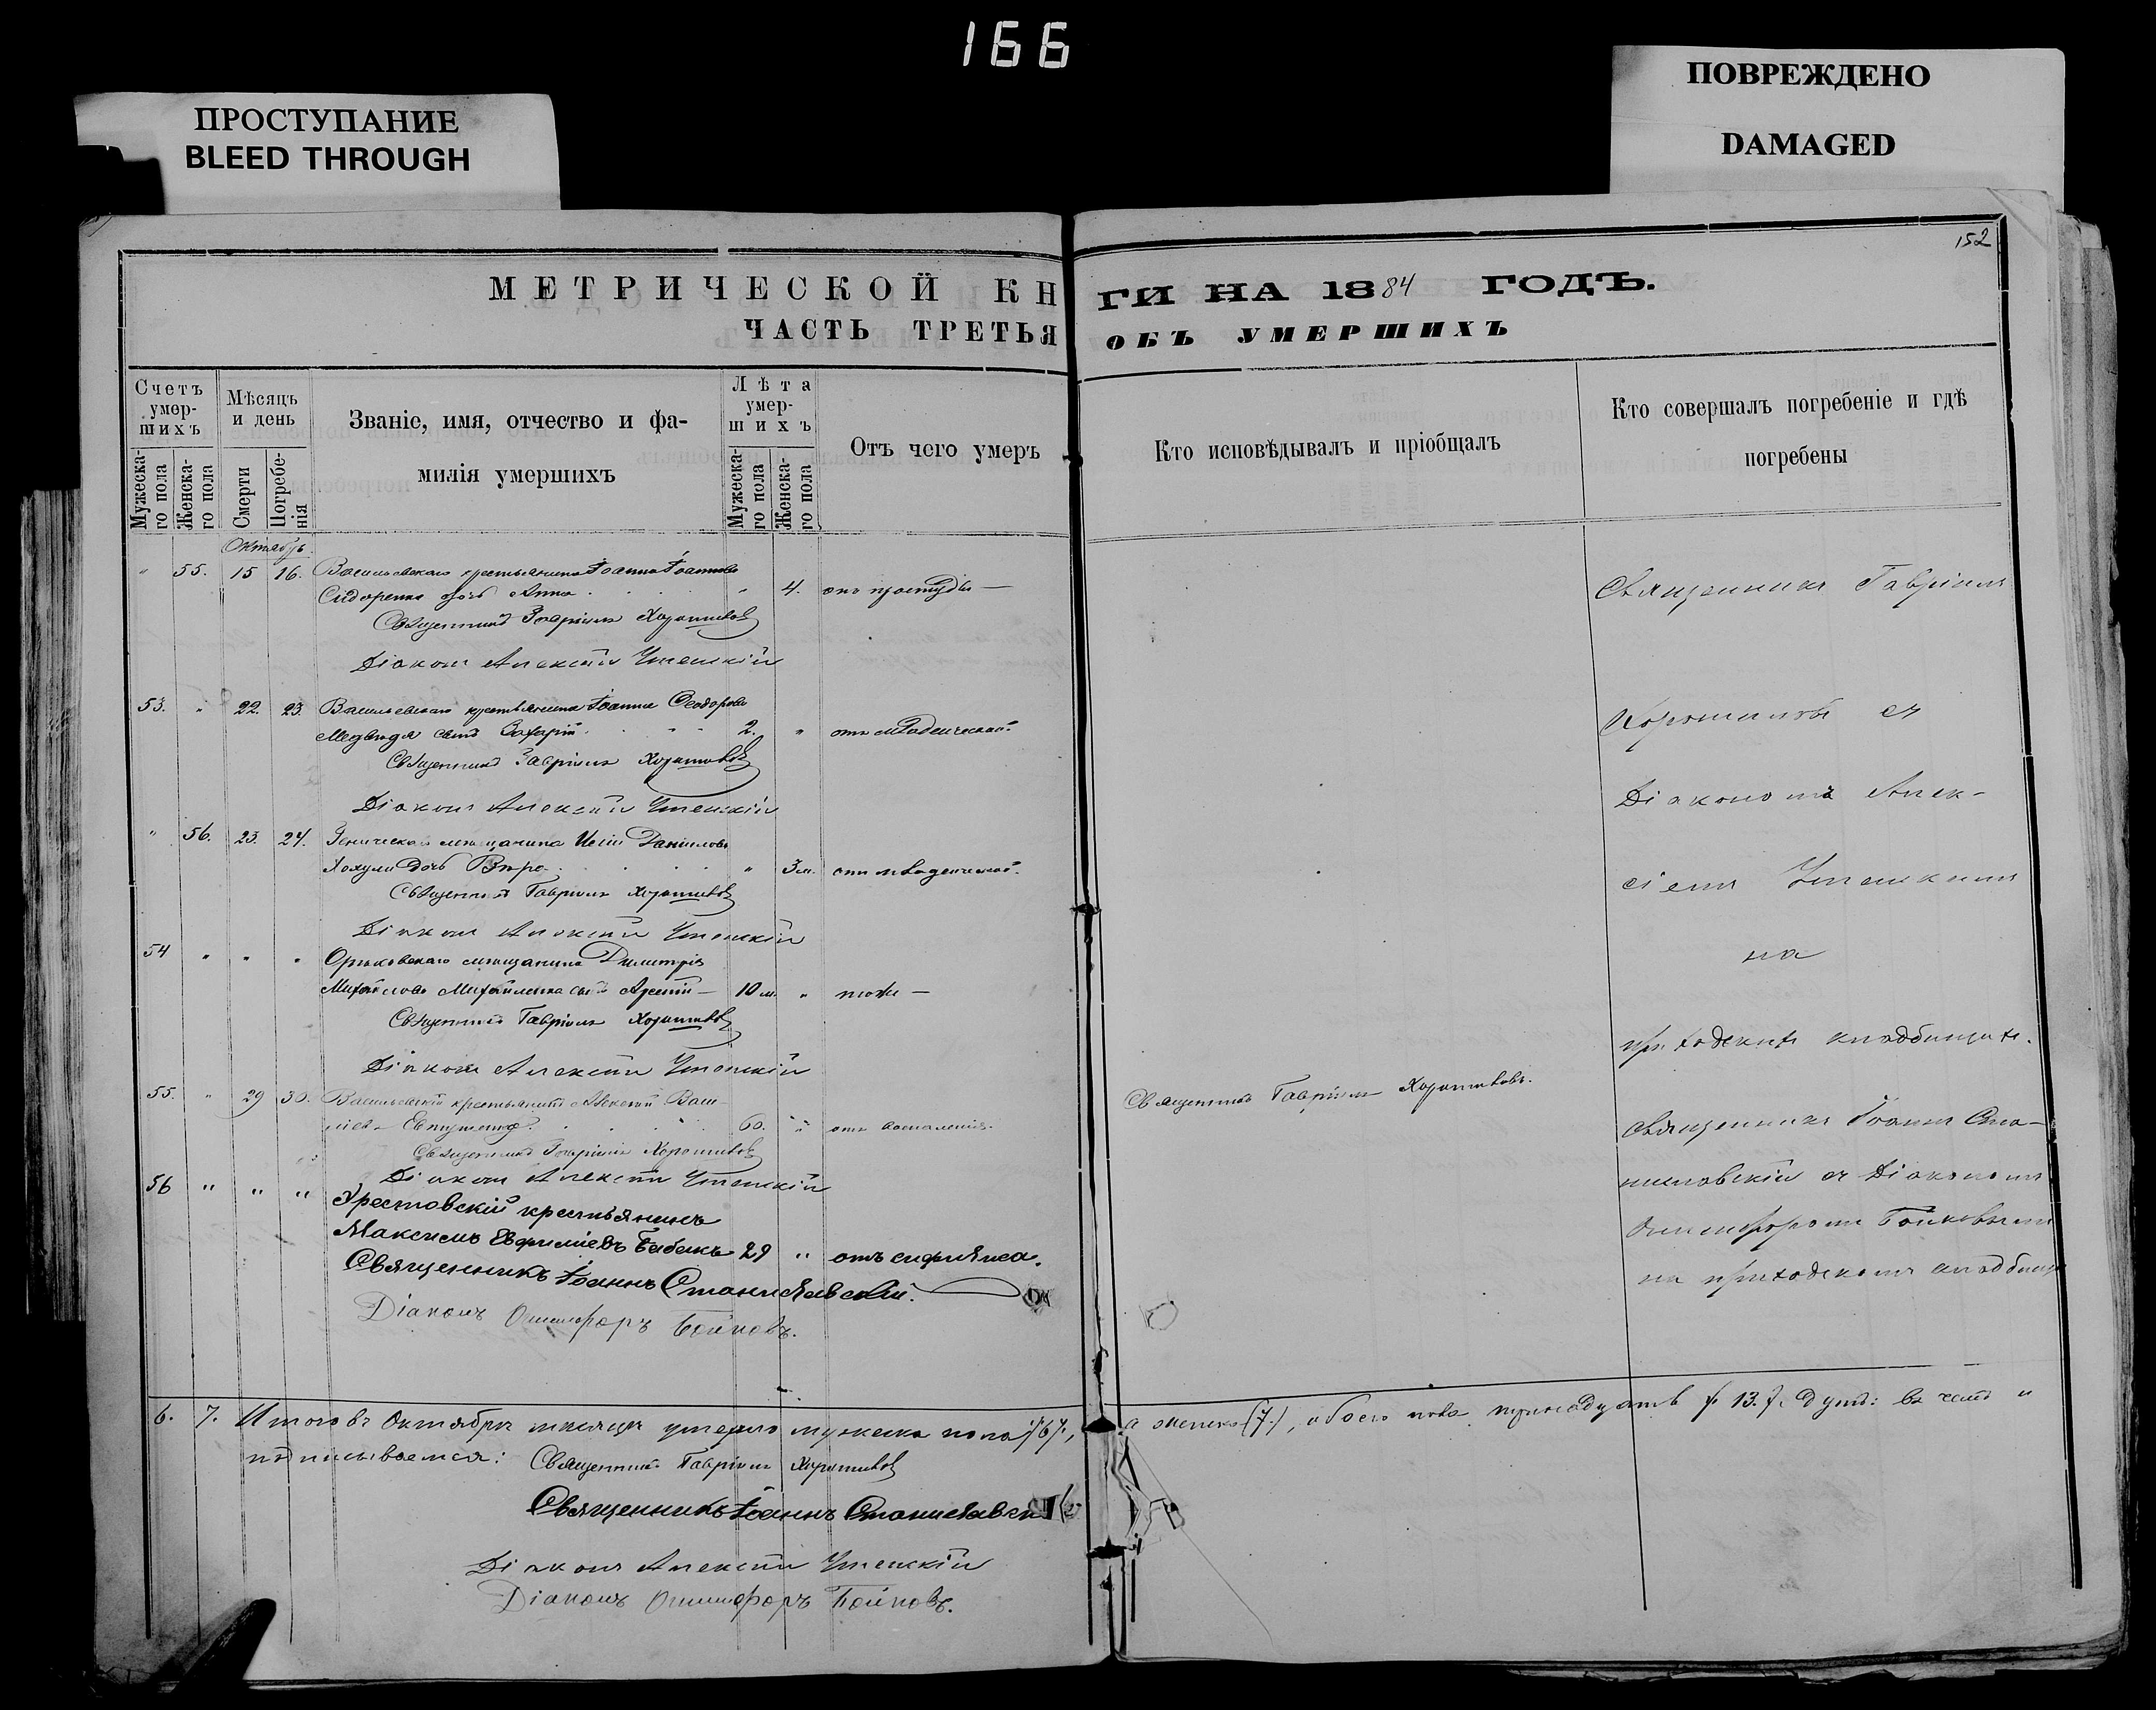 166
ПРОСТУПАНИЕ
BLEED THROUGH
ПОВРЕЖДЕНО
DAMAGED
152
МЕТРИЧЕСКОЙ КНИГИ НА 1884 ГОДЪ.
ЧАСТЬ ТРЕТЬЯ ОБЪ УМЕРШИХЪ
Счетъ умер-шихъ
Мужеска-го пола
Женска-го пола
Мѣсяцъ и день
Смерти
Погребе-нія
Званіе, имя, отчество и фа-
милія умершихъ
Лѣта умер-шихъ
Мужеска-го пола
Женска-го пола
Отъ чего умеръ
Кто исповѣдывалъ и пріобщалъ
Кто совершалъ погребеніе и гдѣ
погребены
Октябрь.
" 55. 15 16. Васильевскаго крестьянина Іоанна Іоаннова
Сидоренка дочь Анна " 4. отъ простуды —
Священникъ Гавріилъ Хорошиловъ
Діаконъ Алексій
53. " 22. 23. Васильевскаго крестьянина Іоанна Ѳеодорова
Медведя сынъ Захарій 2. " отъ младенческой.
Священникъ Гавріилъ Хорошиловъ
Діаконъ Алексій
" 56. 23. 24. мещанина Даніилова
дочь Вѣра " 3 м. отъ младенческой.
Священникъ Гавріилъ Хорошиловъ
Діаконъ Алексій
54 " " " Орѣховскаго мещанина Димитрія
Михайлова Михайленка сынъ 10 м. " тоже —
Священникъ Гавріилъ Хорошиловъ
Діаконъ Алексій
55. " 29 30. Васильевскій крестьянинъ Алексій Васи-
ліевъ 60. " отъ воспаленія.
Священникъ Гавріилъ Хорошиловъ
Діаконъ Алексій
56 " " " крестьянинъ
Максимъ Евфиміевъ Бабакъ 29 " отъ сифилиса.
Священникъ Іоаннъ Станиславскій.
Діаконъ Онисифоръ Бойковъ.
Священникъ Гавріилъ Хорошиловъ.
Священникъ Гавріилъ
Хорошиловъ съ
Діакономъ Алек-
сіемъ
на
приходскомъ кладбищѣ.
Священникъ Іоаннъ Ста-
ниславскій съ Діакономъ
Онисифоромъ Бойковымъ
на приходскомъ кладбищѣ
6. 7. Итого въ Октябрѣ мѣсяцѣ умерло мужеска пола (6), а женска (7), обоего пола тринадцать (13) душъ: въ чемъ и
подписываемся: Священникъ Гавріилъ Хорошиловъ
Священникъ Іоаннъ Станиславскій
Діаконъ Алексій
Діаконъ Онисифоръ Бойковъ.